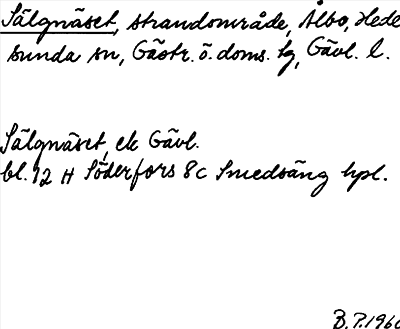 Sälgnäset, strandområde, Ålbo, Hede
sunda sn, Gästr. ö. doms. tg, Gävl. l.
Sälgnäset, ek Gävl.
bl. 12 H Söderfors 8c Smedsäng hpl.
B.P. 1960